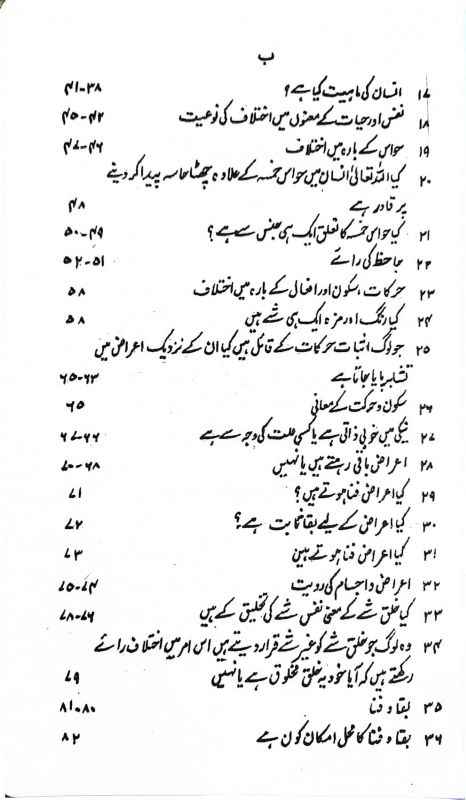 ب
۱۷ انسان کی ماہیت کیا ہے؟ ۳۸-۴۱
۱۸ نفس اور حیات کے معنوں میں اختلاف کی نوعیت ۴۲-۴۵
۱۹ حواس کے بارہ میں اختلاف ۴۶-۴۷
۲۰ کیا اللہ تعالیٰ انسان میں حواس خمسہ کے علاوہ چھٹا حاسہ پیدا کر دینے
پر قادر ہے ۴۸
۲۱ کیا حواس خمسہ کا تعلق ایک ہی جنس سے ہے؟ ۴۹-۵۰
۲۲ جاحظ کی رائے ۵۱-۵۲
۲۳ حرکات، سکون اور افعال کے بارہ میں اختلاف ۵۸
۲۴ کیا رنگ اور مزہ ایک ہی شے ہیں ۵۸
۲۵ جو لوگ اثبات حرکات کے قائل ہیں کیا ان کے نزدیک اعراض میں
تشابہ پایا جاتا ہے ۶۳-۶۵
۲۶ سکون و حرکت کے معانی ۶۵
۲۷ نیکی میں خوبی ذاتی ہے یا کسی علت کی وجہ سے ہے ۶۶-۶۷
۲۸ اعراض باقی رہتے ہیں یا نہیں ۶۸-۷۰
۲۹ کیا اعراض فنا ہوتے ہیں؟ ۷۱
۳۰ کیا اعراض کے لیے بقا ثابت ہے؟ ۷۲
۳۱ کیا اعراض فنا ہوتے ہیں ۷۳
۳۲ اعراض و اجسام کی رویت ۷۴-۷۵
۳۳ کیا خلق شے کے معنی نفس شے کی تخلیق کے ہیں ۷۶-۷۸
۳۴ وہ لوگ جو خلق شے کو غیر شے قرار دیتے ہیں اس امر میں اختلاف رائے
رکھتے ہیں کہ آیا خود یہ خلق مخلوق ہے یا نہیں ۷۹
۳۵ بقا و فنا ۸۰-۸۱
۳۶ بقا و فنا کا محل امکان کون ہے ۸۲